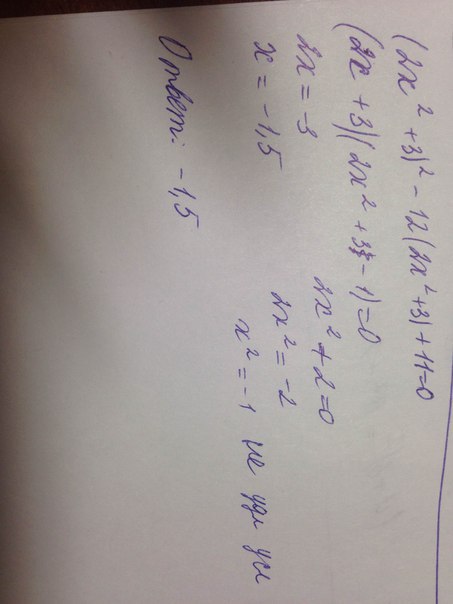 (2x² + 3)² - 12(2x² + 3) + 11 = 0
(2x + 3)(2x² + 3 - 1) = 0
2x = -3
x = -1,5
2x² + 2 = 0
2x² = -2
x² = -1 не удл усл
Ответ: -1,5